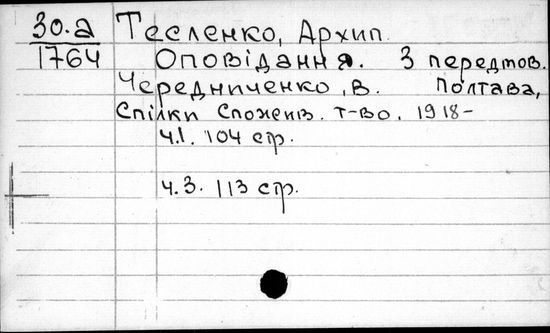 30.а Тесленко, Архип.
1764 Оповідання. З передмов.
Чередниченко, В. Полтава,
Спілки Спожив. т-во. 1918-
ч.1. 104 стр.
ч.3. 113 стр.